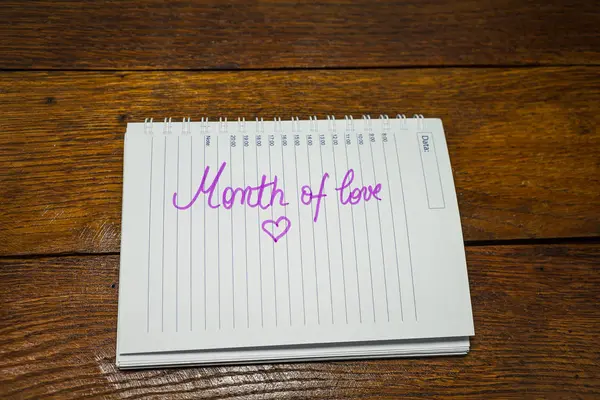 Month of love
Data:
8:00
9:00
10:00
11:00
12:00
13:00
14:00
15:00
16:00
17:00
18:00
19:00
20:00